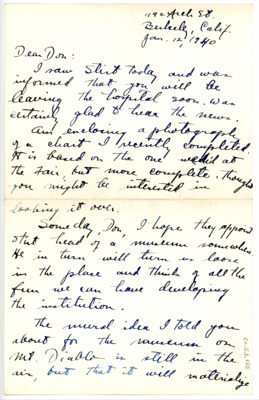 1192 Arch St.
Berkeley, Calif.
Jan. 12, 1940
Dear Don:
I saw Stirt today and was
informed that you will be
leaving the hospital soon. Was
certainly glad to hear the news.
Am enclosing a photograph
of a chart I recently completed.
It is based on the one used at
the Fair, but more complete. Thought
you might be interested in
looking it over.
Someday, Don, I hope they appoint
Stirt head of a museum somewhere.
He in turn will turn us loose
in the place and think of all the
fun we can have developing
the institution.
The mural idea I told you
about for the museum on
Mt. Diablo is still in the
air, but that it will materialize